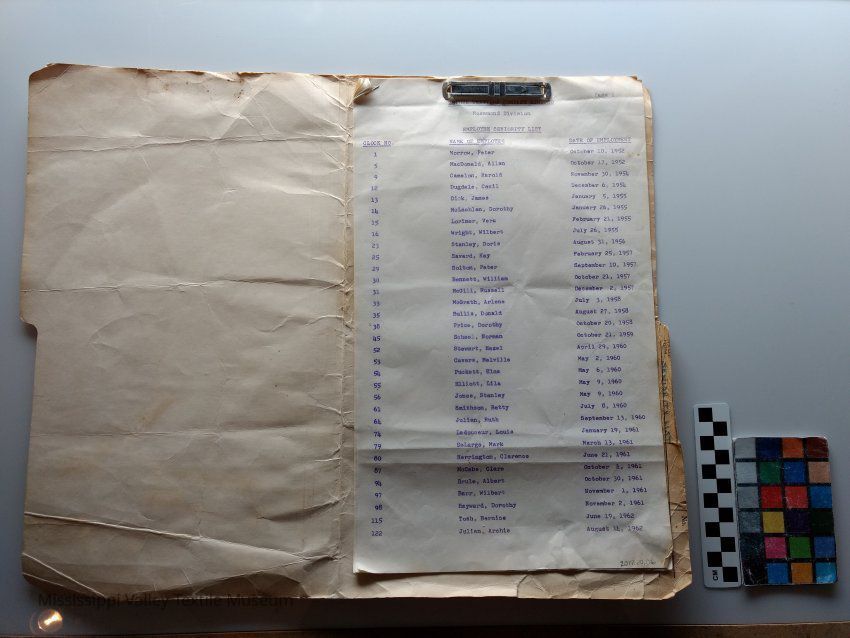 Page 1
Rosamond Division
EMPLOYEE SENIORITY LIST
CLOCK NO. NAME OF EMPLOYEE DATE OF EMPLOYMENT
1 Morrow, Peter October 10, 1952
5 MacDonald, Allan October 17, 1952
9 Camelon, Harold November 30, 1954
12 Dugdale, Cecil December 6, 1954
13 Dick, James January 5, 1955
14 McLachlan, Dorothy January 24, 1955
15 Lorimer, Vera February 21, 1955
16 Wright, Wilbert July 26, 1955
23 Stanley, Doris August 31, 1956
25 Havard, Kay February 25, 1957
29 Houston, Peter September 10, 1957
30 Bennett, William October 21, 1957
31 McGill, Russell December 2, 1957
33 McGrath, Arlene July 3, 1958
35 Hollis, Donald August 27, 1958
38 Price, Dorothy October 20, 1958
45 School, Norman October 21, 1959
52 Stewart, Hazel April 29, 1960
53 Cavers, Melville May 2, 1960
54 Puckett, Elna May 6, 1960
55 Elliott, Lila May 9, 1960
56 Jones, Stanley May 9, 1960
61 Smithson, Betty July 8, 1960
64 Julian, Ruth September 13, 1960
74 Ladouceur, Louis January 19, 1961
79 DeLarge, Mark March 13, 1961
80 Harrington, Clarence June 21, 1961
87 McCabe, Clare October 4, 1961
94 Brule, Albert October 30, 1961
97 Barr, Wilbert November 1, 1961
98 Hayward, Dorothy November 2, 1961
115 Tosh, Bernice June 19, 1962
122 Julian, Archie August 14, 1962
2017.10.06
CM
Mississippi Valley Textile Museum